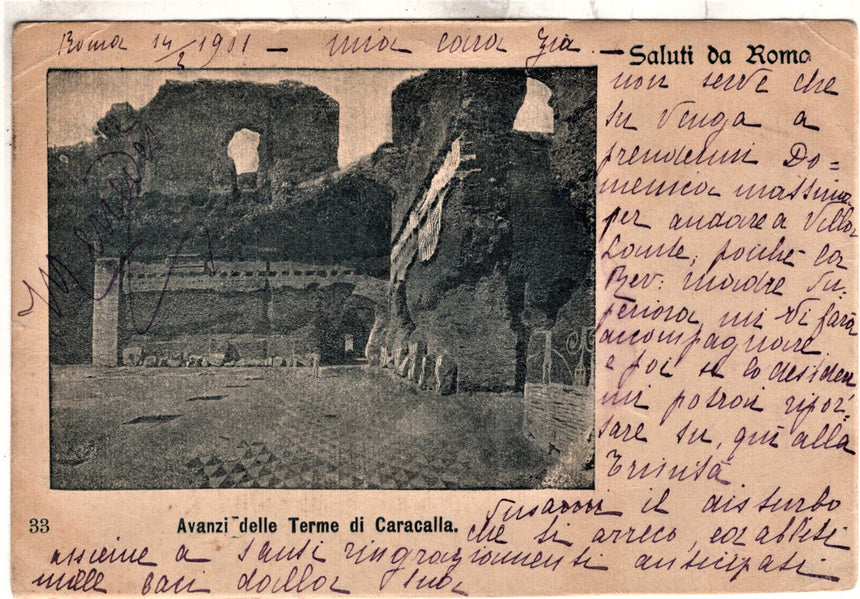 Roma 14/2 1901 — mia cara zia. —
Saluti da Roma
non serve che
tu venga a
prendermi Do=
menica massima
per andare a Villa
Lante, poichè la
Rev: madre Su=
periora mi vi farà
accompagnare
e poi se lo desideri
mi potrai ripor=
tare tu, quì alla
Trinità
33
Avanzi delle Terme di Caracalla.
il disturbo
che ti arreco, ed abbiti
assieme a tanti ringraziamenti anticipati
mille baci dalla tua